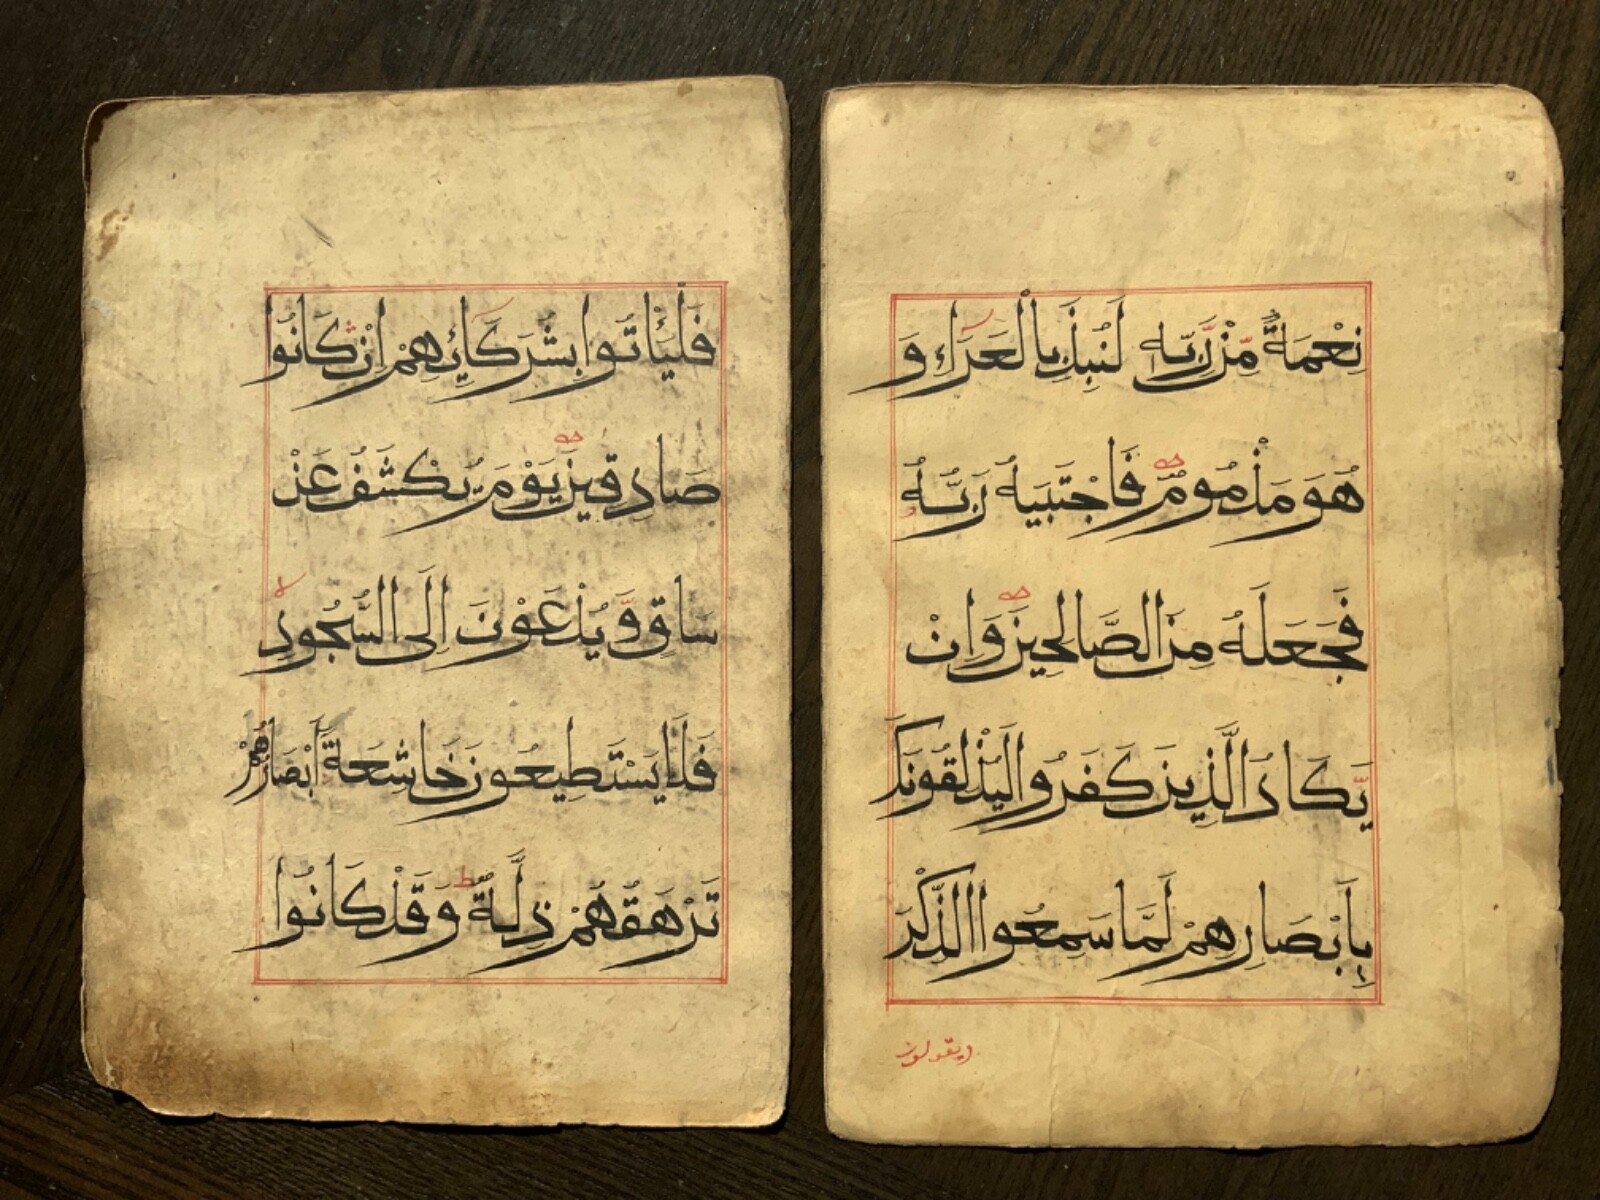 نِعْمَةٌ مِّنْ رَّبِّهٖ لَنُبِذَ بِالْعَرَآءِ وَ
هُوَ مَذْمُومٌ فَاجْتَبٰيهُ رَبُّهُ
فَجَعَلَهُ مِنَ الصَّالِحِينَ وَاِنْ
يَّكَادُ الَّذِينَ كَفَرُوا لَيُذْلِقُونَكَ
بِاَبْصَارِهِمْ لَمَّا سَمِعُوا الذِّكْرَ
ويقولون
فَلْيَأْتُوا بِشُرَكَآئِهِمْ اِنْ كَانُوا
صَادِقِينَ يَوْمَ يُكْشَفُ عَنْ
سَاقٍ وَّيُدْعَوْنَ اِلَى السُّجُودِ
فَلَا يَسْتَطِيعُونَ خَاشِعَةً اَبْصَارُهُمْ
تَرْهَقُهُمْ ذِلَّةٌ وَقَدْ كَانُوا